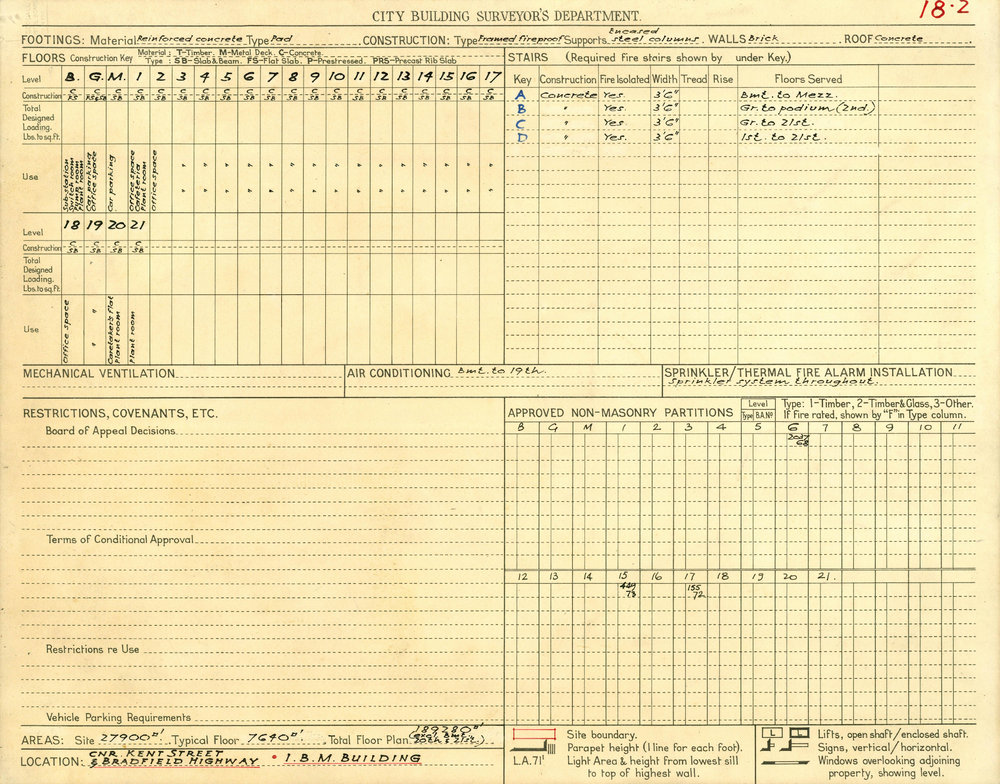 18·2
CITY BUILDING SURVEYOR'S DEPARTMENT.
FOOTINGS: Material Reinforced concrete Type Pad CONSTRUCTION: Type Framed fireproof Supports Encased steel columns. WALLS Brick ROOF Concrete
FLOORS Construction Key Material: T-Timber. M-Metal Deck. C-Concrete.
Type: SB-Slab & Beam. FS-Flat Slab. P-Prestressed. PRS-Precast Rib Slab
Level B. G. M. 1 2 3 4 5 6 7 8 9 10 11 12 13 14 15 16 17
Construction C FS C FS&SB C SB C SB C SB C SB C SB C SB C SB C SB C SB C SB C SB C SB C SB C SB C SB C SB C SB C SB
Total
Designed
Loading.
Lbs. to sq.ft.
Use
Sub-station
Switch room
Pump room
Plant room
Car parking
Office space
Car parking.
Office space
Cafeteria
Plant room
Office space
" " " " " " " " " " " " " " "
" " " " " " " " " " " " " " "
Level 18 19 20 21
Construction C SB C SB C SB C SB
Total
Designed
Loading.
Lbs. to sq.ft.
Use
Office space
"
"
Caretaker's flat
Plant room
Plant room
STAIRS (Required fire stairs shown by under Key.)
Key Construction Fire Isolated Width Tread Rise Floors Served
A Concrete Yes. 3'6" Bmt. to Mezz.
B " Yes. 3'6" Gr. to podium (2nd.)
C " Yes. 3'6" Gr. to 21st.
D " Yes. 3'6" 1st. to 21st.
MECHANICAL VENTILATION
AIR CONDITIONING Bmt. to 19th.
SPRINKLER/THERMAL FIRE ALARM INSTALLATION
Sprinkler system throughout.
RESTRICTIONS, COVENANTS, ETC.
Board of Appeal Decisions
Terms of Conditional Approval
Restrictions re Use
Vehicle Parking Requirements
APPROVED NON-MASONRY PARTITIONS
Level
Type B.A.Nº
Type: 1-Timber, 2-Timber & Glass, 3-Other.
If Fire rated, shown by "F" in Type column.
B G M 1 2 3 4 5 6 7 8 9 10 11
2037
68
12 13 14 15 16 17 18 19 20 21.
449 155
73 72
AREAS: Site 27900▫' Typical Floor 7640▫' Total Floor Plan 189780▫'
(excl. Bmt. 20th & 21st.)
LOCATION: CNR. KENT STREET
& BRADFIELD HIGHWAY • I.B.M. BUILDING
Site boundary.
Parapet height (1 line for each foot).
L.A.71' Light Area & height from lowest sill
to top of highest wall.
L Lifts, open shaft/enclosed shaft.
Signs, vertical/horizontal.
Windows overlooking adjoining
property, showing level.